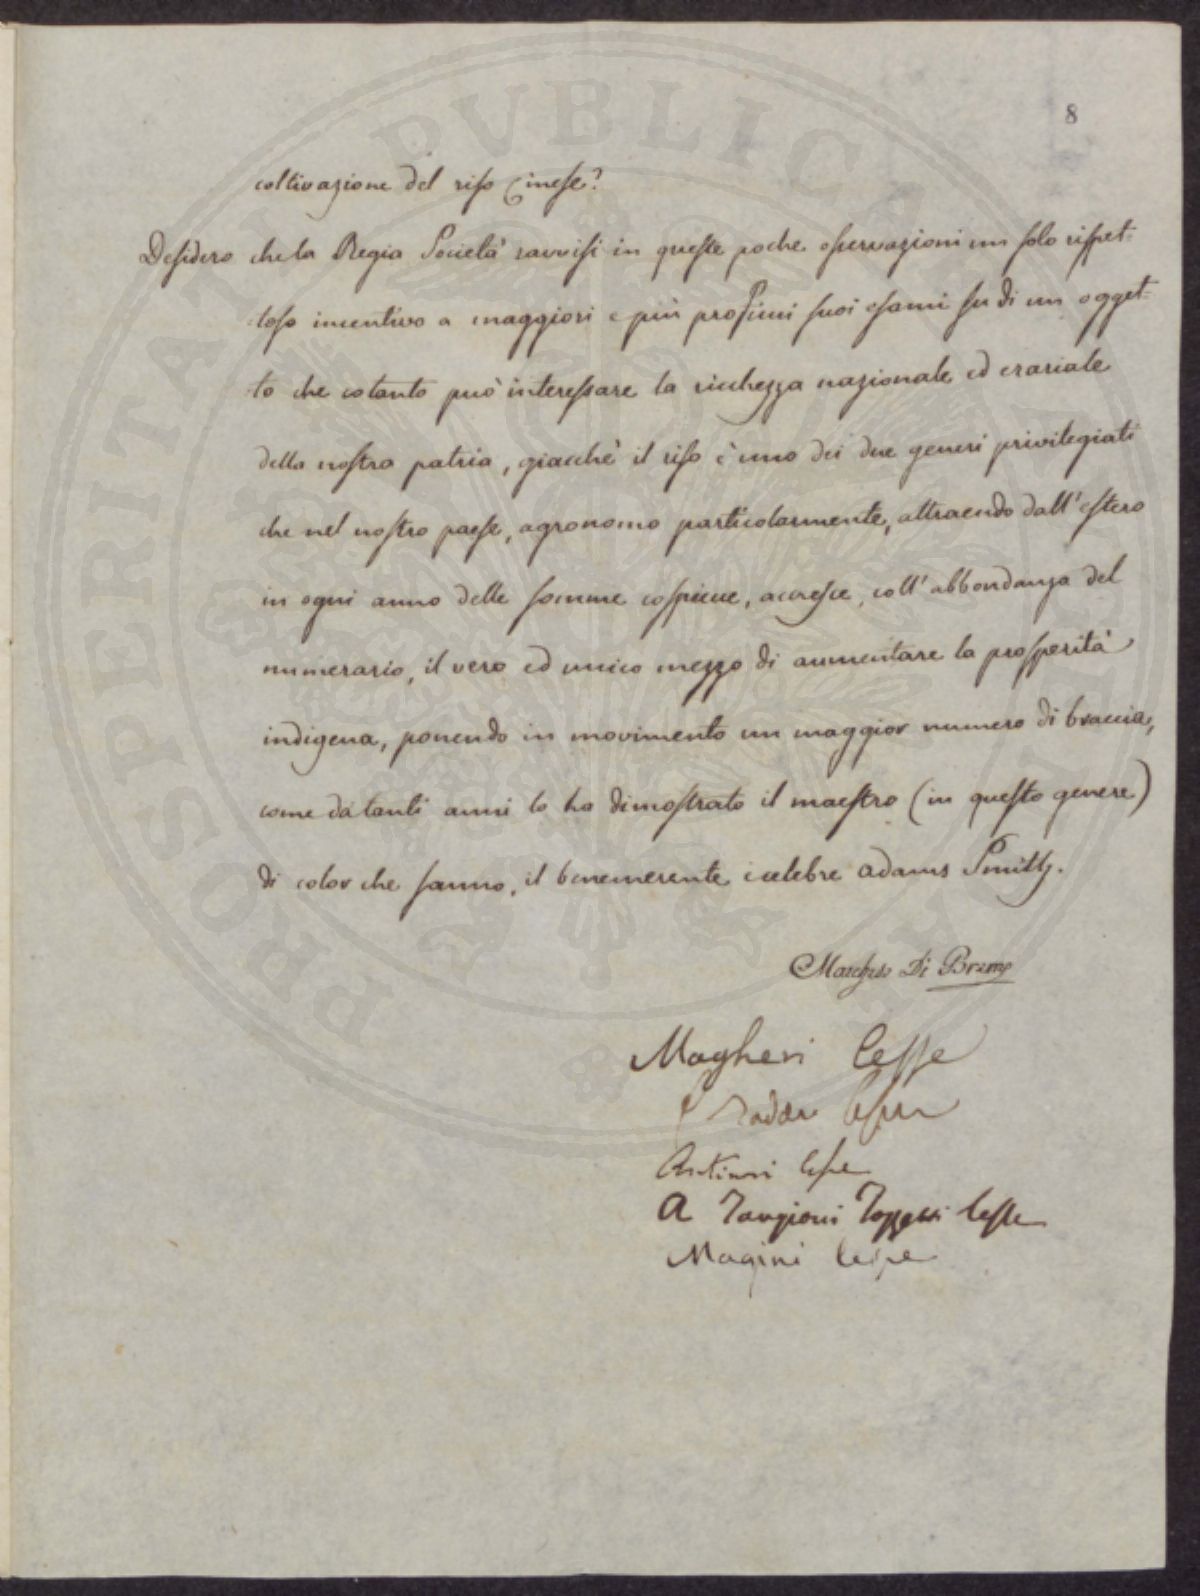 PROSPERITATI PVBLICAE AVGENDAE
8
coltivazione del riso Cinese?
Desidero che la Regia Società ravvisi in queste poche osservazioni un solo rispet-
toso incentivo a maggiori e più prossimi suoi esami su di un ogget-
to che cotanto può interessare la ricchezza nazionale ed erariale
della nostra patria, giacchè il riso è uno dei due generi privilegiati
che nel nostro paese, agronomo particolarmente, attraendo dall'estero
in ogni anno delle somme cospicue, accresce, coll'abbondanza del
numerario, il vero ed unico mezzo di aumentare la prosperità
indigena, ponendo in movimento un maggior numero di braccia,
come da tanti anni lo ha dimostrato il maestro (in questo genere)
di color che sanno, il benemerente celebre Adams Smith.
Marchese Di Breme
Magheri Cesse
Raddi
Antinori
A Targioni Tozzetti Cesse
Magini